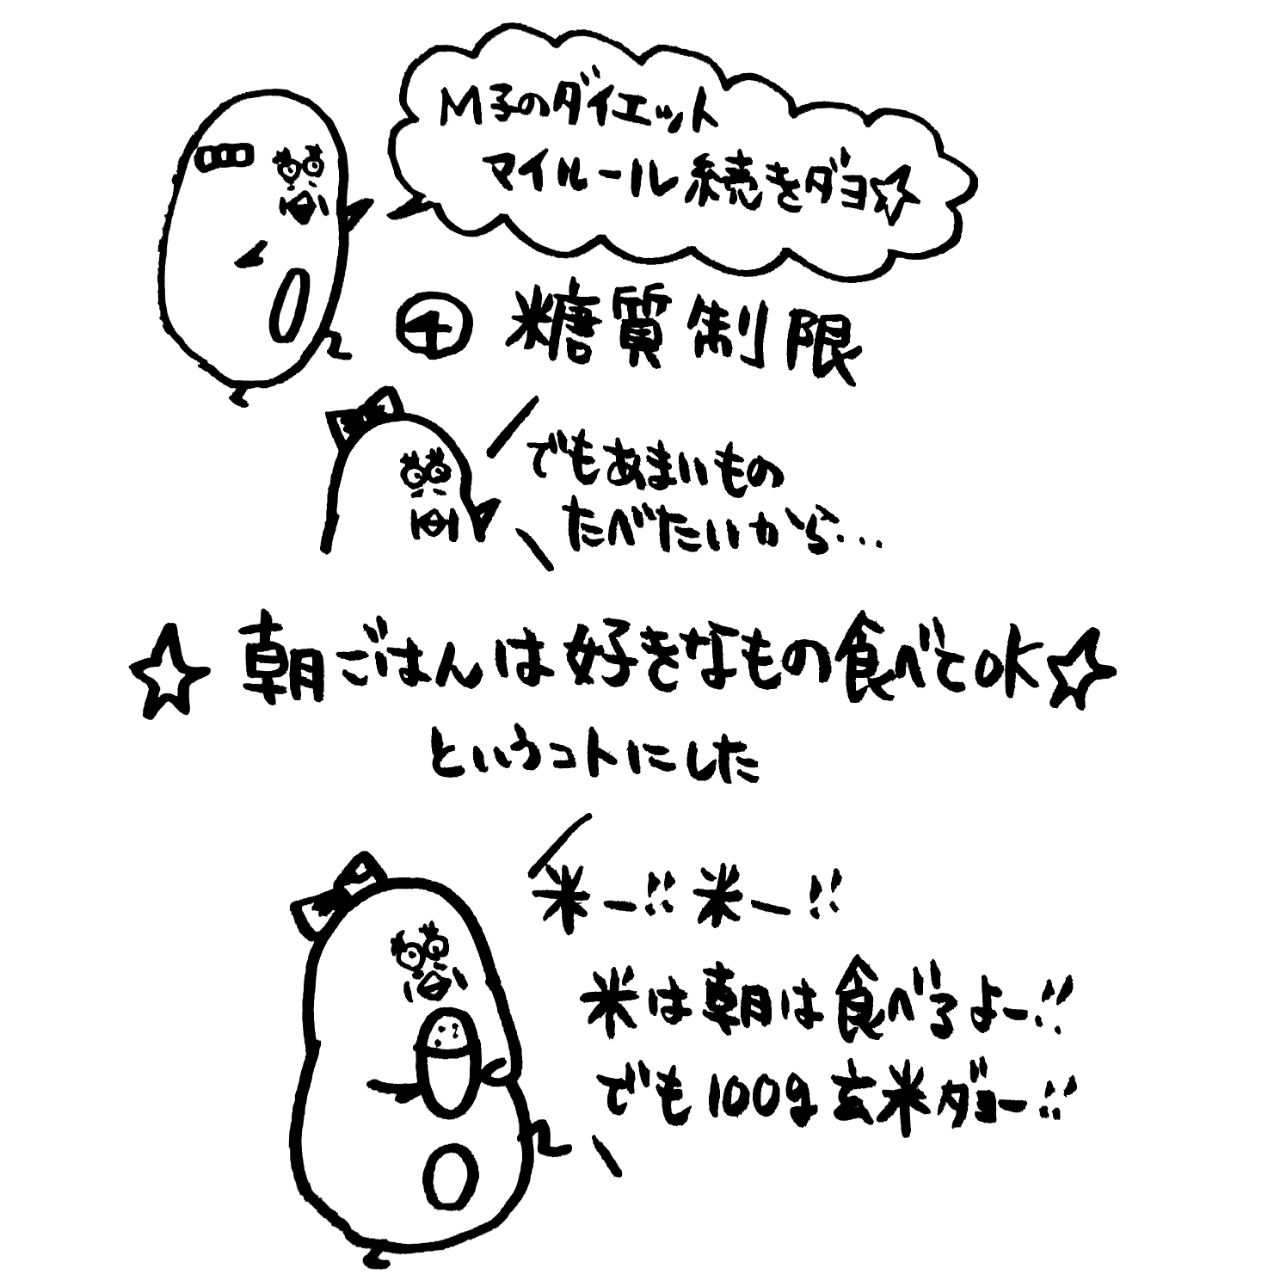 M子のダイエット
マイルール続きダヨ☆
④ 糖質制限
でもあまいもの
たべたいから…
☆朝ごはんは好きなもの食べてOK☆
というコトにした
米ー!! 米ー!!
米は朝は食べるよー!!
でも100g玄米ダヨー!!